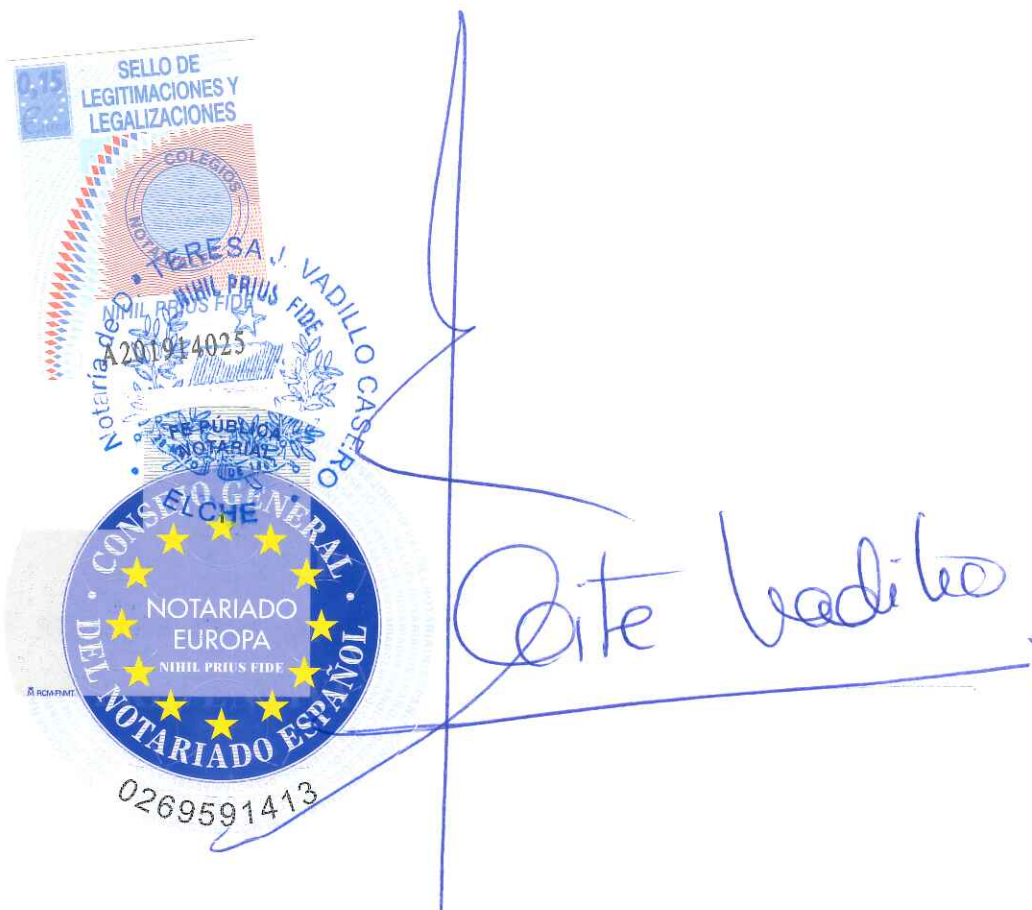 0,15
Euros
SELLO DE
LEGITIMACIONES Y
LEGALIZACIONES
COLEGIOS
NOTARIALES
NIHIL PRIUS FIDE
A201914025
Notaría de D. TERESA J. VADILLO CASERO
NIHIL PRIUS FIDE
FE PÚBLICA
NOTARIAL
DE 1862
ELCHE
CONSEJO GENERAL
DEL NOTARIADO ESPAÑOL
NOTARIADO
EUROPA
NIHIL PRIUS FIDE
RCM-FNMT
0269591413
Vadillo